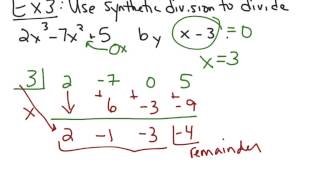 Ex3: Use Synthetic division to divide
2x³-7x²+5 by x-3 =0
0x
x=3
3 2 -7 0 5
x ↓ + 6 + -3 + -9
2 -1 -3 -4
remainder